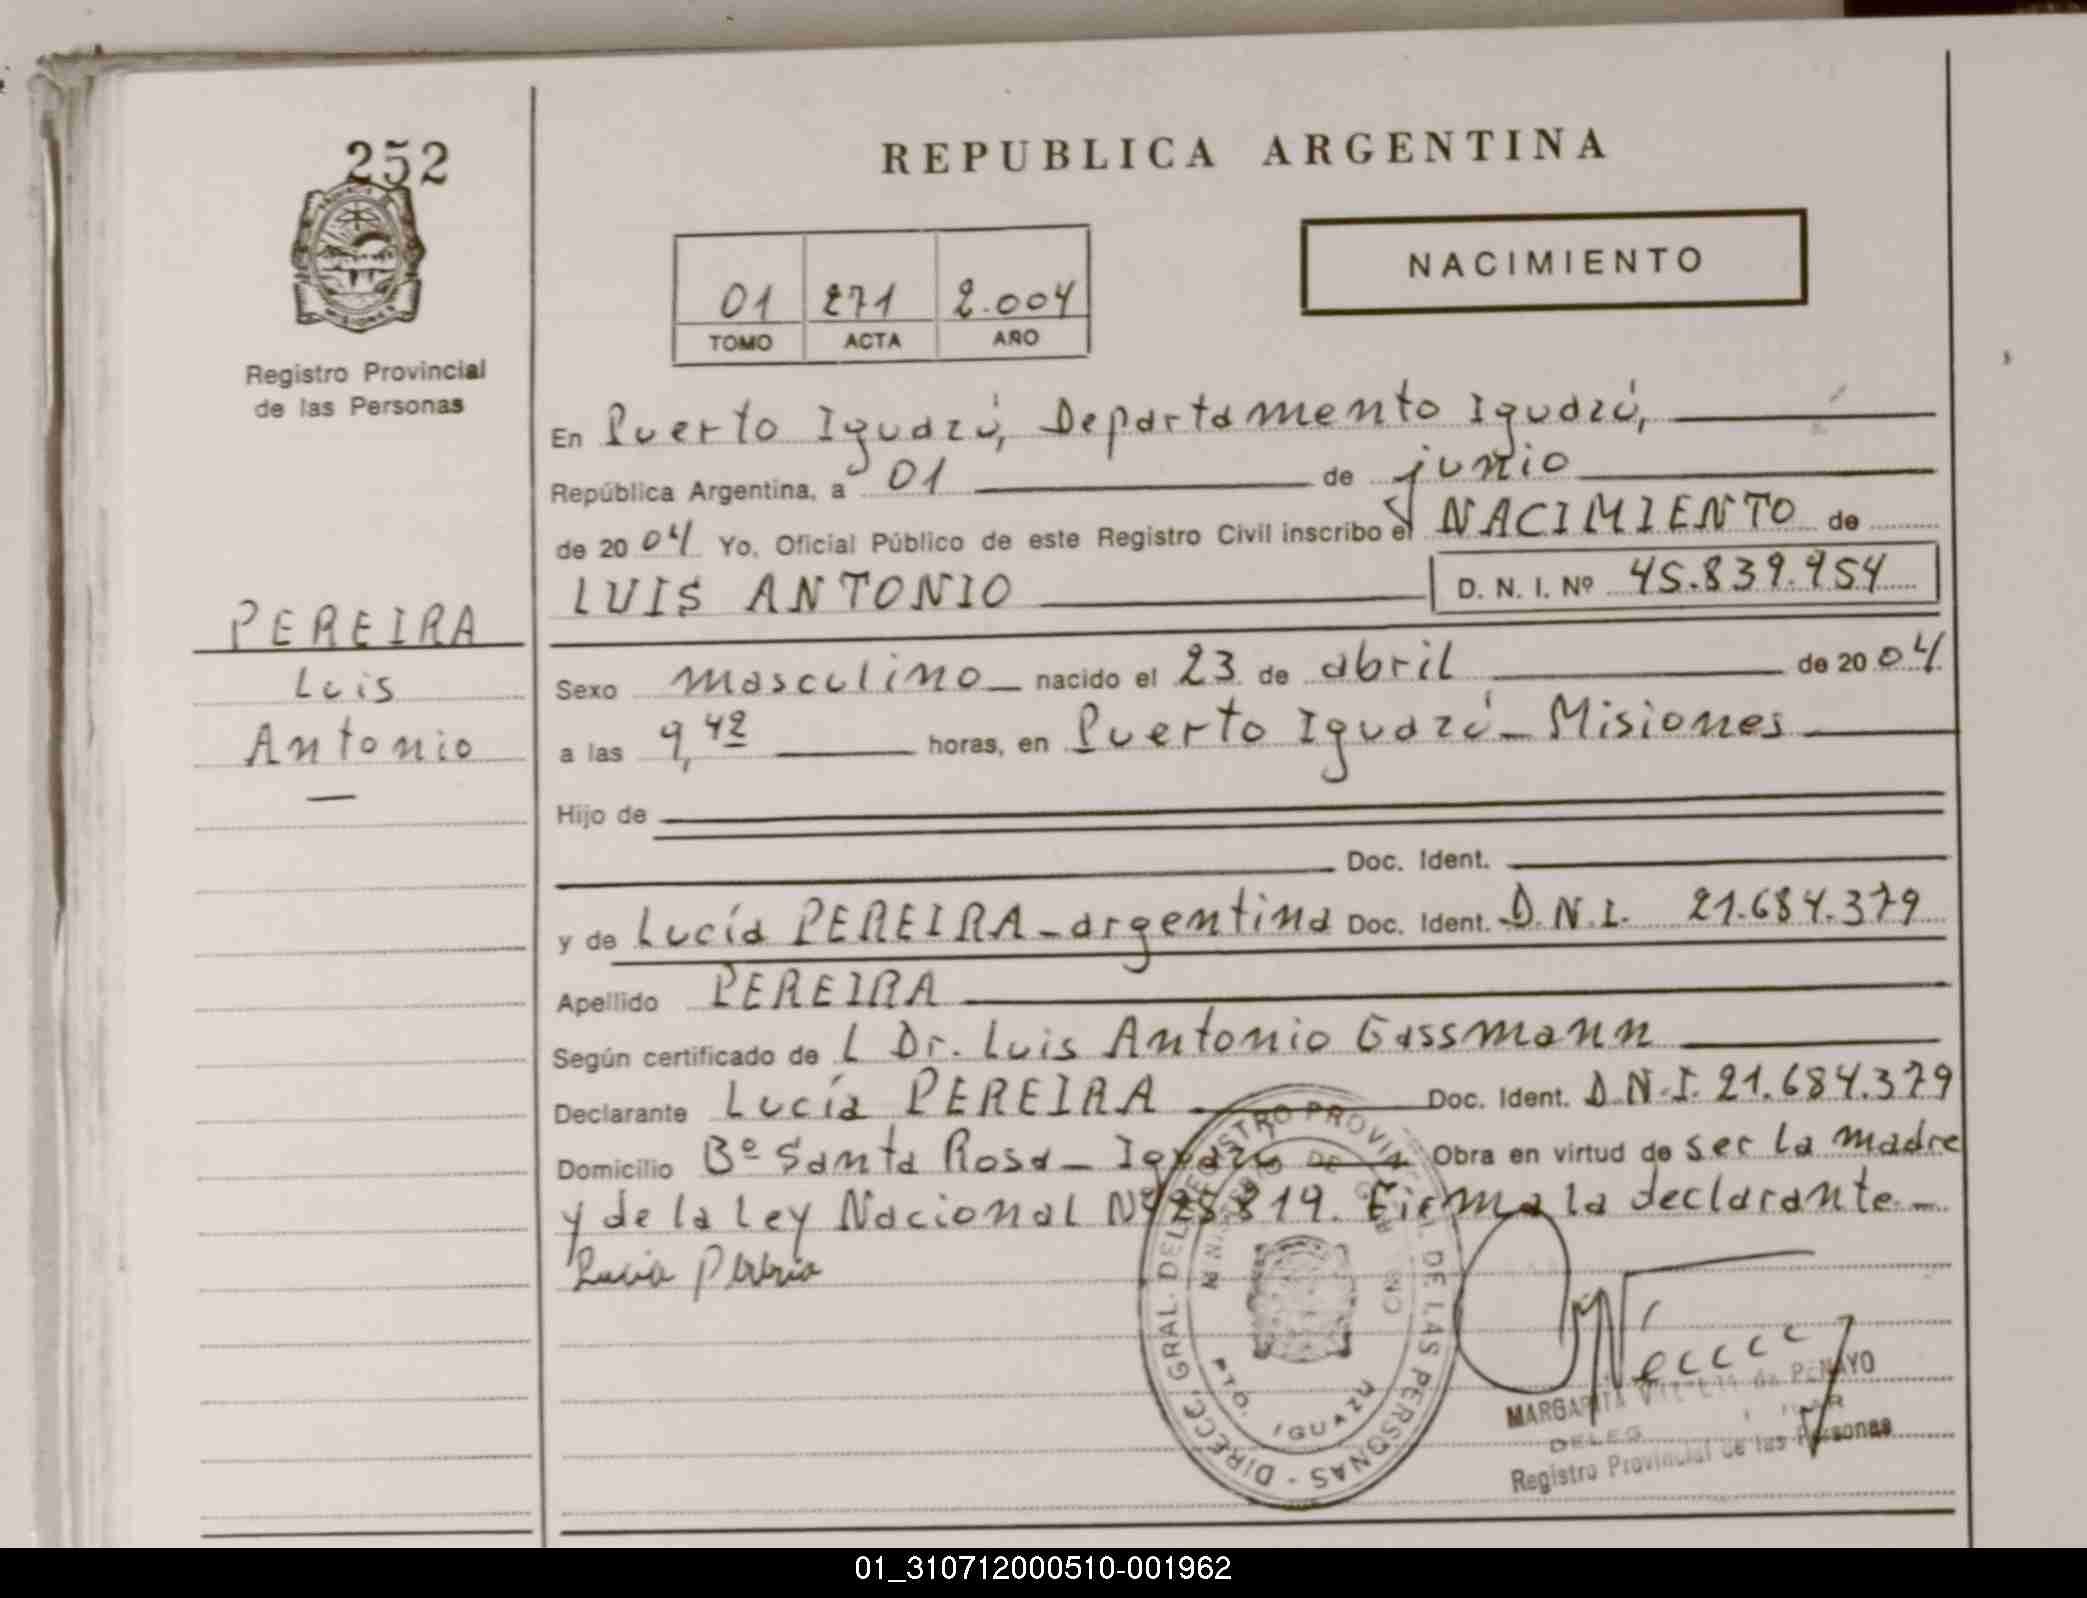 252
Registro Provincial
de las Personas
PEREIRA
Luis
Antonio
REPUBLICA ARGENTINA
01 271 2.004
TOMO ACTA AÑO
NACIMIENTO
En Puerto Iguazú, Departamento Iguazú,
República Argentina, a 01 de junio
de 2004 Yo, Oficial Público de este Registro Civil inscribo el NACIMIENTO de
LUIS ANTONIO D. N. I. Nº 45.839.954
Sexo masculino nacido el 23 de abril de 2004
a las 9,42 horas, en Puerto Iguazú - Misiones
Hijo de
Doc. Ident.
y de Lucía PEREIRA - argentina Doc. Ident. D.N.I. 21.684.379
Apellido PEREIRA
Según certificado de l Dr. Luis Antonio Gassmann
Declarante Lucía PEREIRA Doc. Ident. D.N.I. 21.684.379
Domicilio Bº Santa Rosa - Iguazú Obra en virtud de ser la madre
y de la Ley Nacional Nº 25819. Firma la declarante -
DIRECC. GRAL. DEL REGISTRO PROVINCIAL DE LAS PERSONAS -
MINISTERIO DE
PTO. IGUAZU
MARGARITA de PENAYO
Registro Provincial de las Personas
01_310712000510-001962